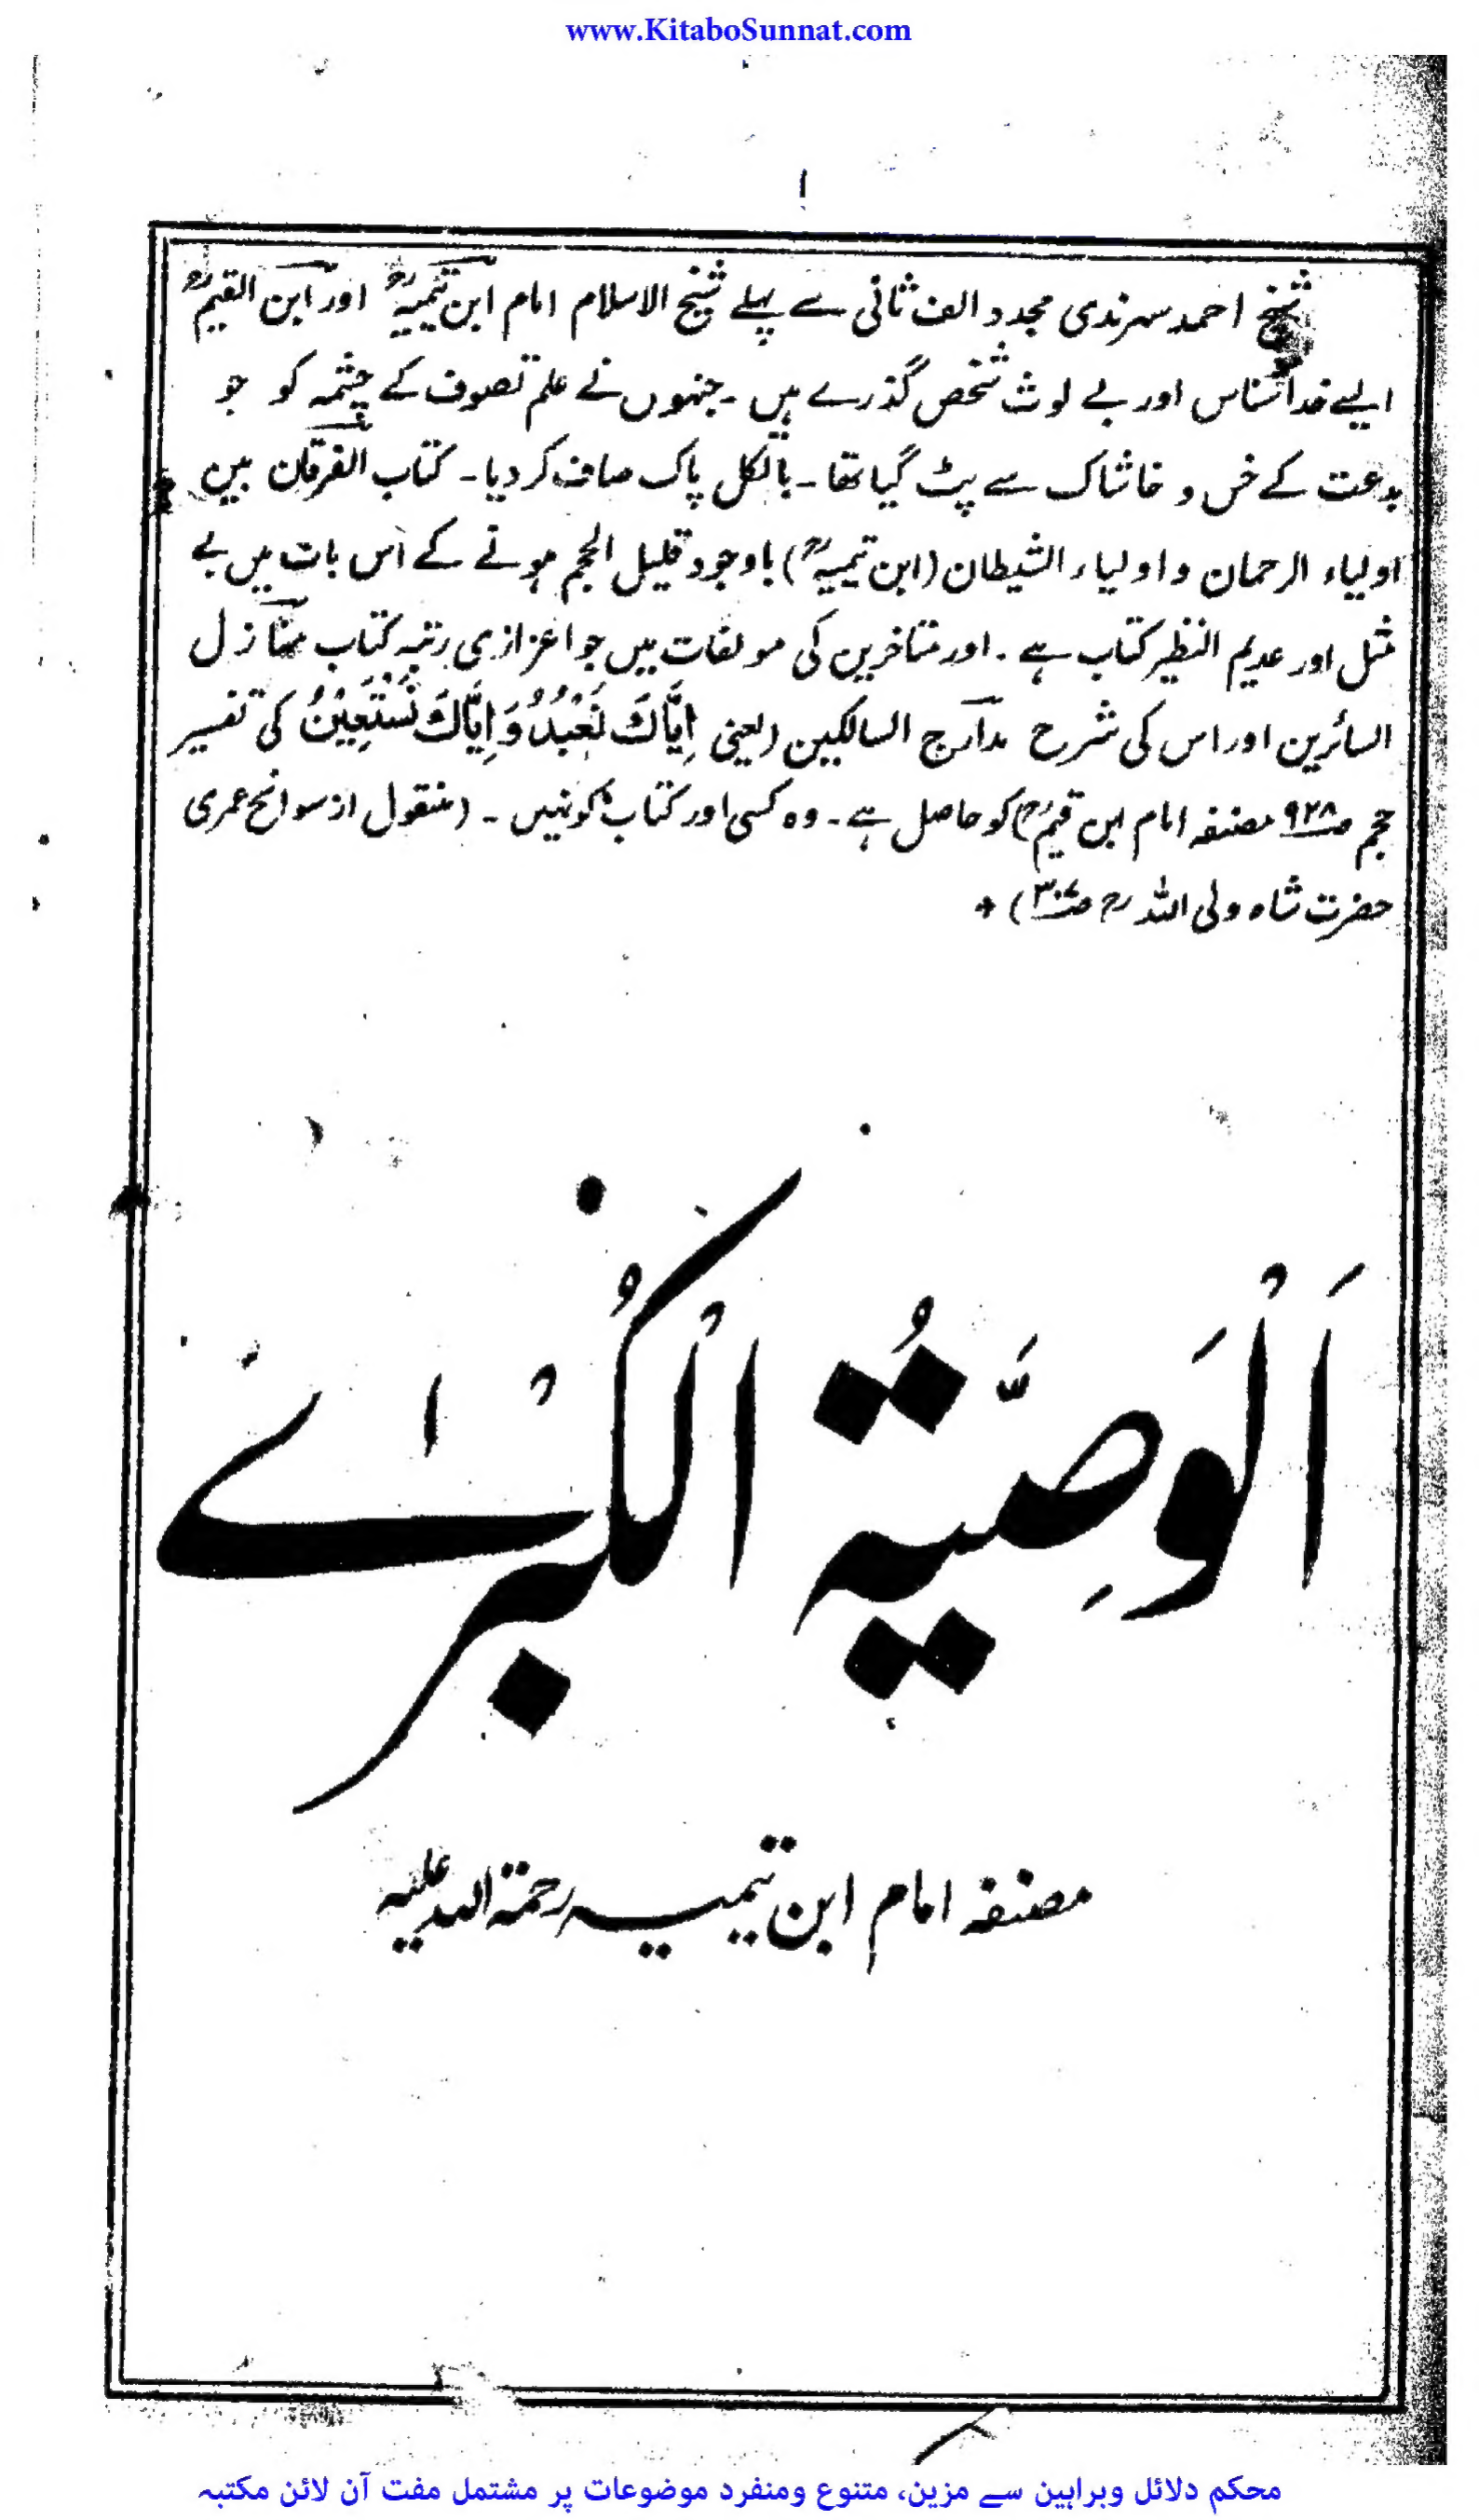 www.KitaboSunnat.com
۱
شیخ احمد سرہندی مجدد الف ثانی سے پہلے شیخ الاسلام امام ابن تیمیہؒ اور ابن القیمؒ
ایسے خدا شناس اور بے لوث شخص گذرے ہیں ۔ جنہوں نے علم تصوف کے چشمہ کو جو
بدعت کے خس و خاشاک سے پٹ گیا تھا ۔ بالکل پاک صاف کر دیا ۔ کتاب الفرقان بین
اولیاء الرحمان و اولیاء الشیطان (ابن تیمیہؒ) باوجود قلیل الحجم ہونے کے اس بات میں بے
مثل اور عدیم النظیر کتاب ہے ۔ اور متاخرین کی مولفات میں جو اعزازی رتبہ کتاب منازل
السائرین اور اس کی شرح مدارج السالکین (یعنی اِيَّاكَ نَعْبُدُ وَاِيَّاكَ نَسْتَعِيْنُ کی تفسیر
حجم ص۹۲۸ مصنفہ امام ابن قیمؒ) کو حاصل ہے ۔ وہ کسی اور کتاب کو نہیں ۔ (منقول از سوانح عمری
حضرت شاہ ولی اللہ رح ) +
اَلْوَصِيَّةُ الْكُبْرٰے
مصنفہ امام ابن تیمیہ رحمۃ اللہ علیہ
محکم دلائل وبراہین سے مزین، متنوع ومنفرد موضوعات پر مشتمل مفت آن لائن مکتبہ